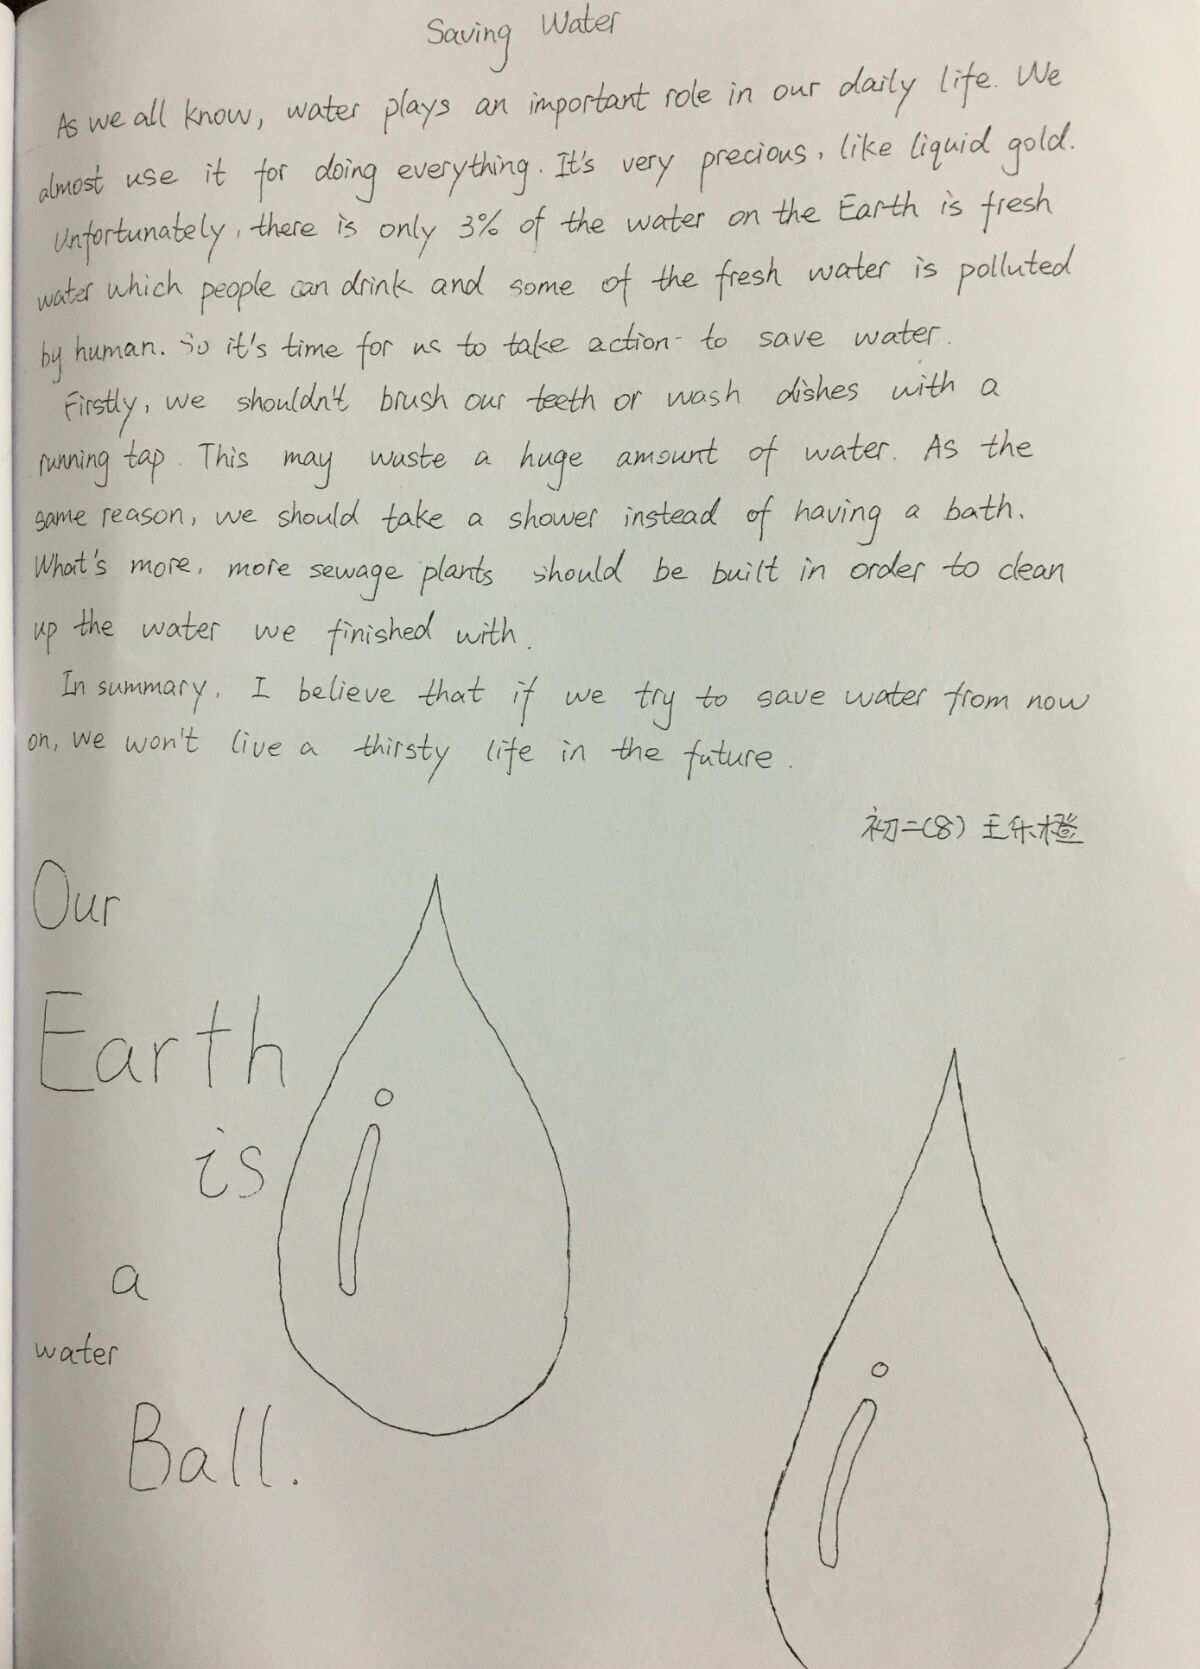 Saving Water
As we all know, water plays an important role in our daily life. We
almost use it for doing everything. It's very precious, like liquid gold.
Unfortunately, there is only 3% of the water on the Earth is fresh
water which people can drink and some of the fresh water is polluted
by human. So it's time for us to take action to save water.
Firstly, we shouldn't brush our teeth or wash dishes with a
running tap. This may waste a huge amount of water. As the
same reason, we should take a shower instead of having a bath.
What's more, more sewage plants should be built in order to clean
up the water we finished with.
In summary, I believe that if we try to save water from now
on, we won't live a thirsty life in the future.
初二(8) 王乐橙
Our
Earth
is
a
water
Ball.